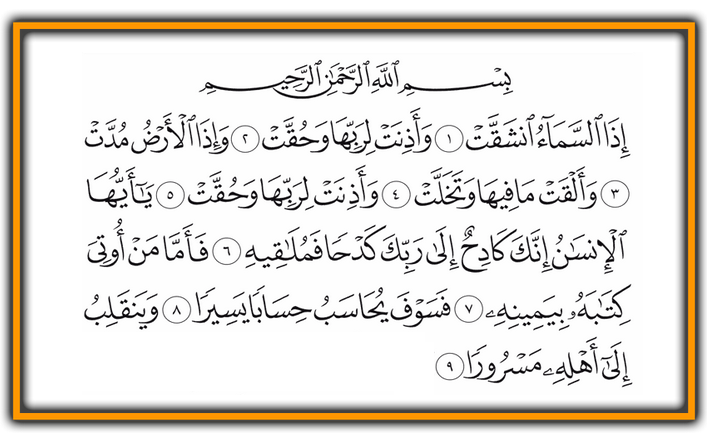 بِسْمِ ٱللَّهِ ٱلرَّحْمَٰنِ ٱلرَّحِيمِ
إِذَا ٱلسَّمَآءُ ٱنشَقَّتْ ١ وَأَذِنَتْ لِرَبِّهَا وَحُقَّتْ ٢ وَإِذَا ٱلْأَرْضُ مُدَّتْ
٣ وَأَلْقَتْ مَا فِيهَا وَتَخَلَّتْ ٤ وَأَذِنَتْ لِرَبِّهَا وَحُقَّتْ ٥ يَٰٓأَيُّهَا
ٱلْإِنسَٰنُ إِنَّكَ كَادِحٌ إِلَىٰ رَبِّكَ كَدْحًا فَمُلَٰقِيهِ ٦ فَأَمَّا مَنْ أُوتِىَ
كِتَٰبَهُۥ بِيَمِينِهِۦ ٧ فَسَوْفَ يُحَاسَبُ حِسَابًا يَسِيرًا ٨ وَيَنقَلِبُ
إِلَىٰٓ أَهْلِهِۦ مَسْرُورًا ٩